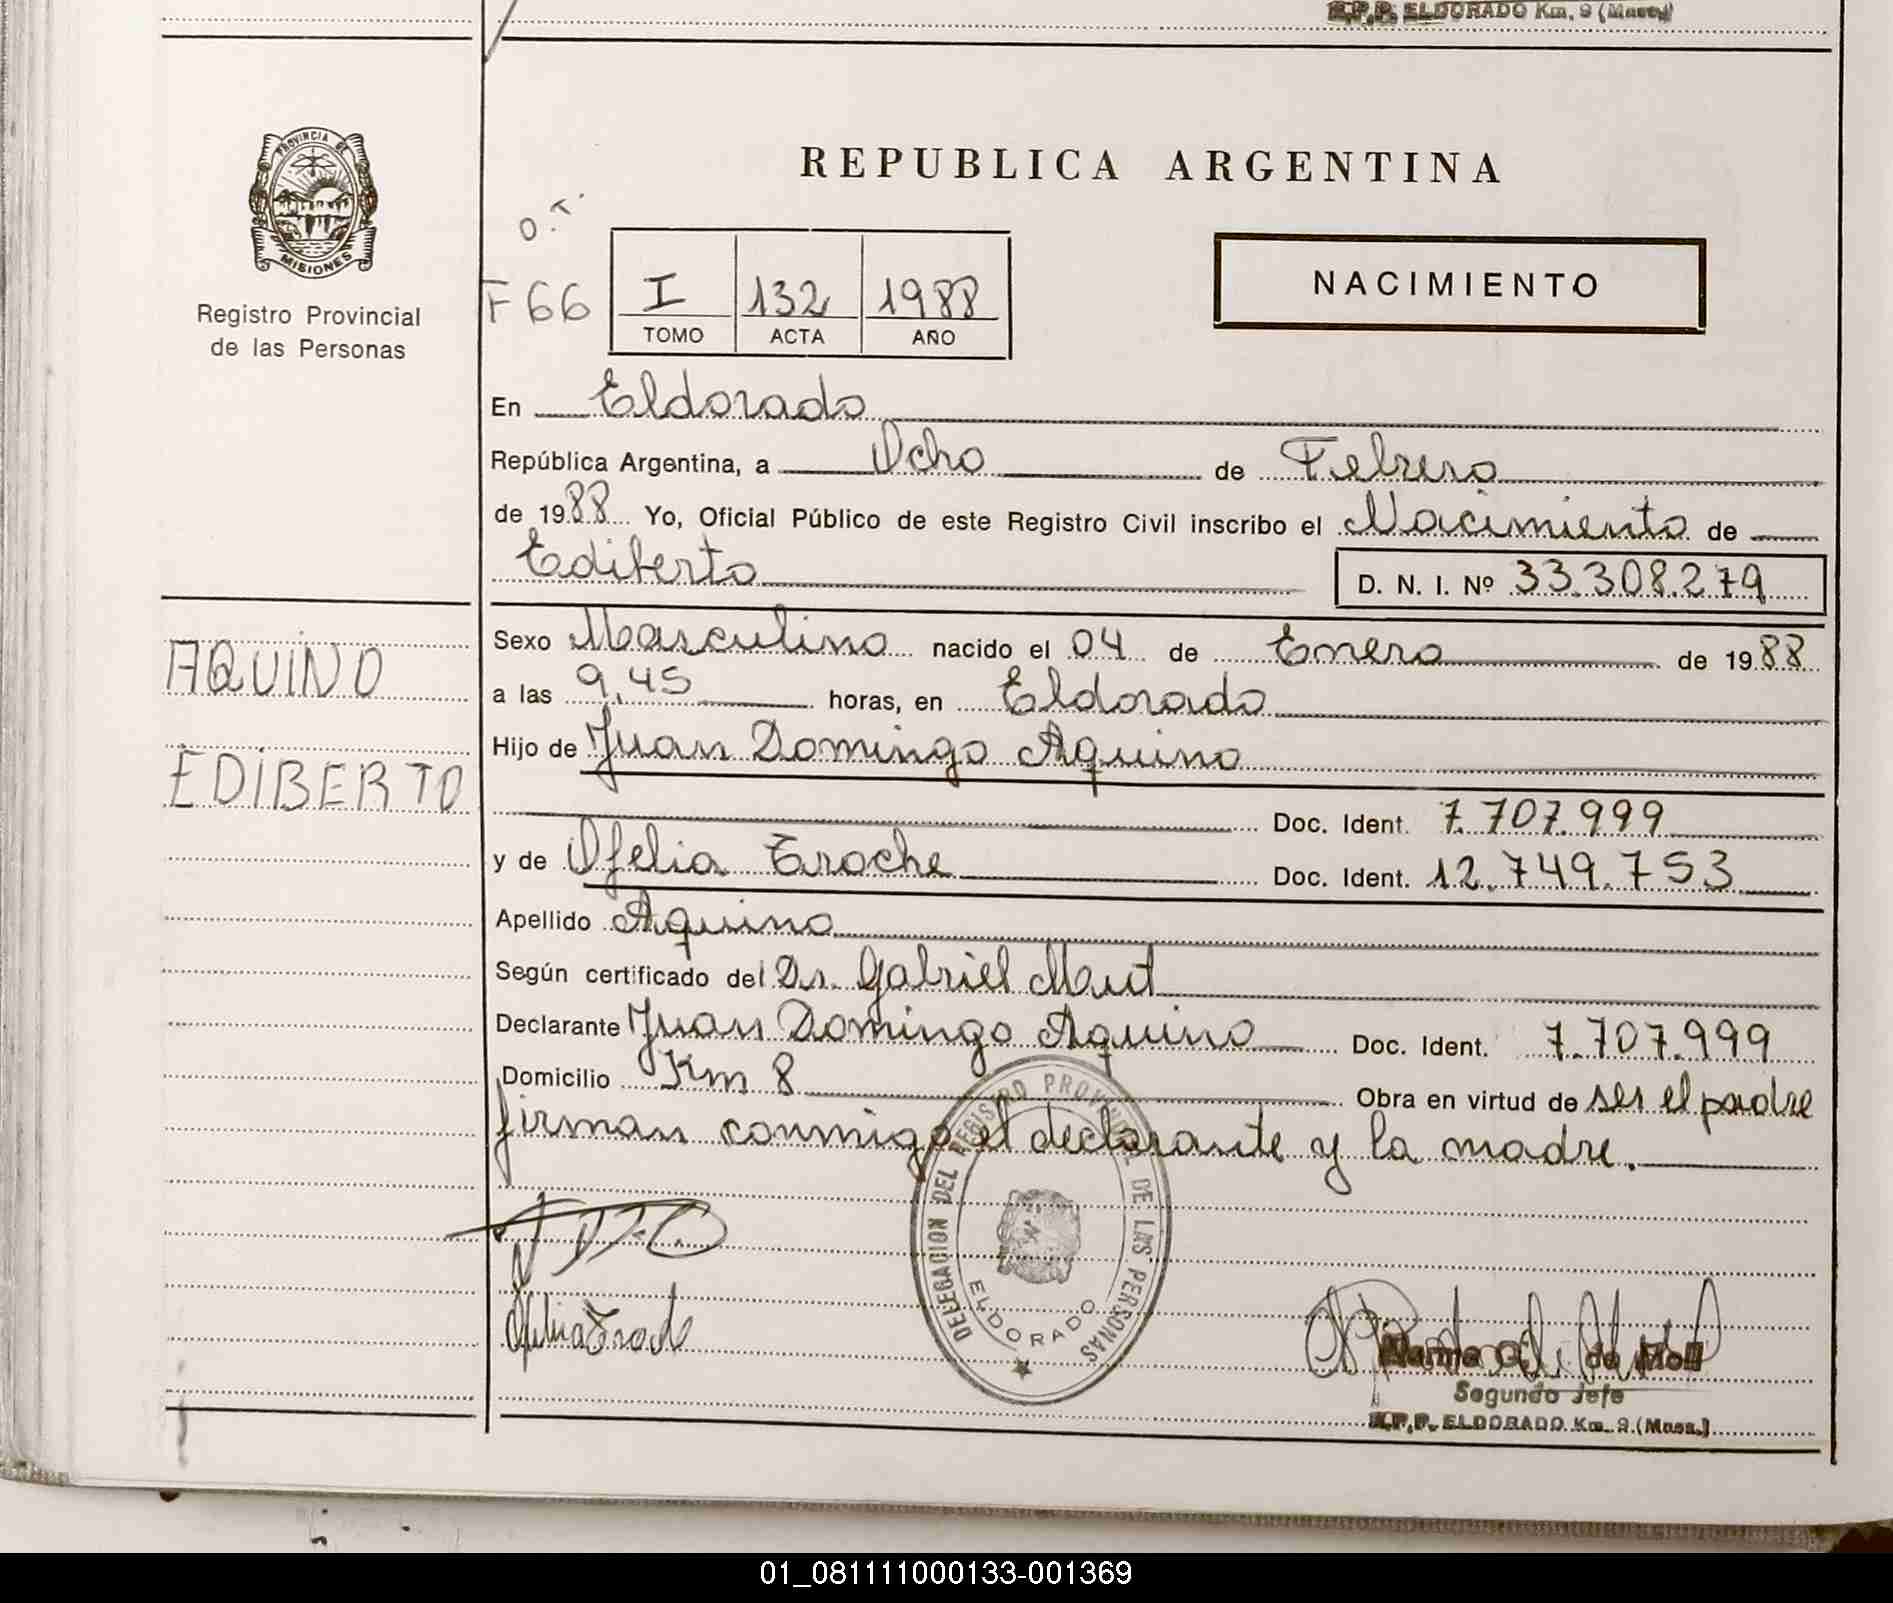 E.P.P. ELDORADO Km. 9 (Mnes.)
PROVINCIA DE
MISIONES
Registro Provincial
de las Personas
REPUBLICA ARGENTINA
O.T.
NACIMIENTO
F 66 I 132 1988
TOMO ACTA AÑO
En Eldorado
República Argentina, a Ocho de Febrero
de 1988 Yo, Oficial Público de este Registro Civil inscribo el Nacimiento de
Ediberto D. N. I. Nº 33.308.279
AQUINO
EDIBERTO
Sexo Masculino nacido el 04 de Enero de 1988
a las 9,45 horas, en Eldorado
Hijo de Juan Domingo Aquino
Doc. Ident. 7.707.999
y de Ofelia Troche Doc. Ident. 12.749.753
Apellido Aquino
Según certificado del Dr. Gabriel Maut
Declarante Juan Domingo Aquino Doc. Ident. 7.707.999
Domicilio Km 8 Obra en virtud de ser el padre
firman conmigo el declarante y la madre.
DELEGACION DEL REGISTRO PROVINCIAL DE LAS PERSONAS
ELDORADO
Ofelia Troche
de Moll
Segundo Jefe
ELDORADO Km. 9 (Mnes.)
01_081111000133-001369